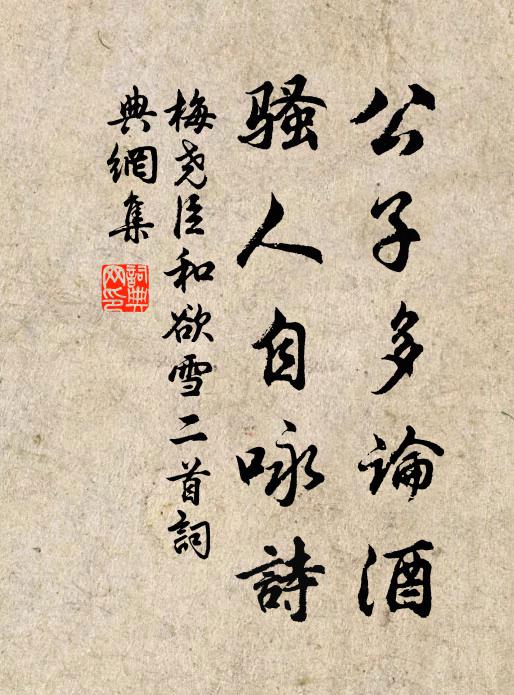 公子多論酒
騷人自咏詩
梅尧臣和欲雪二首詞
典網集
詞典
网印